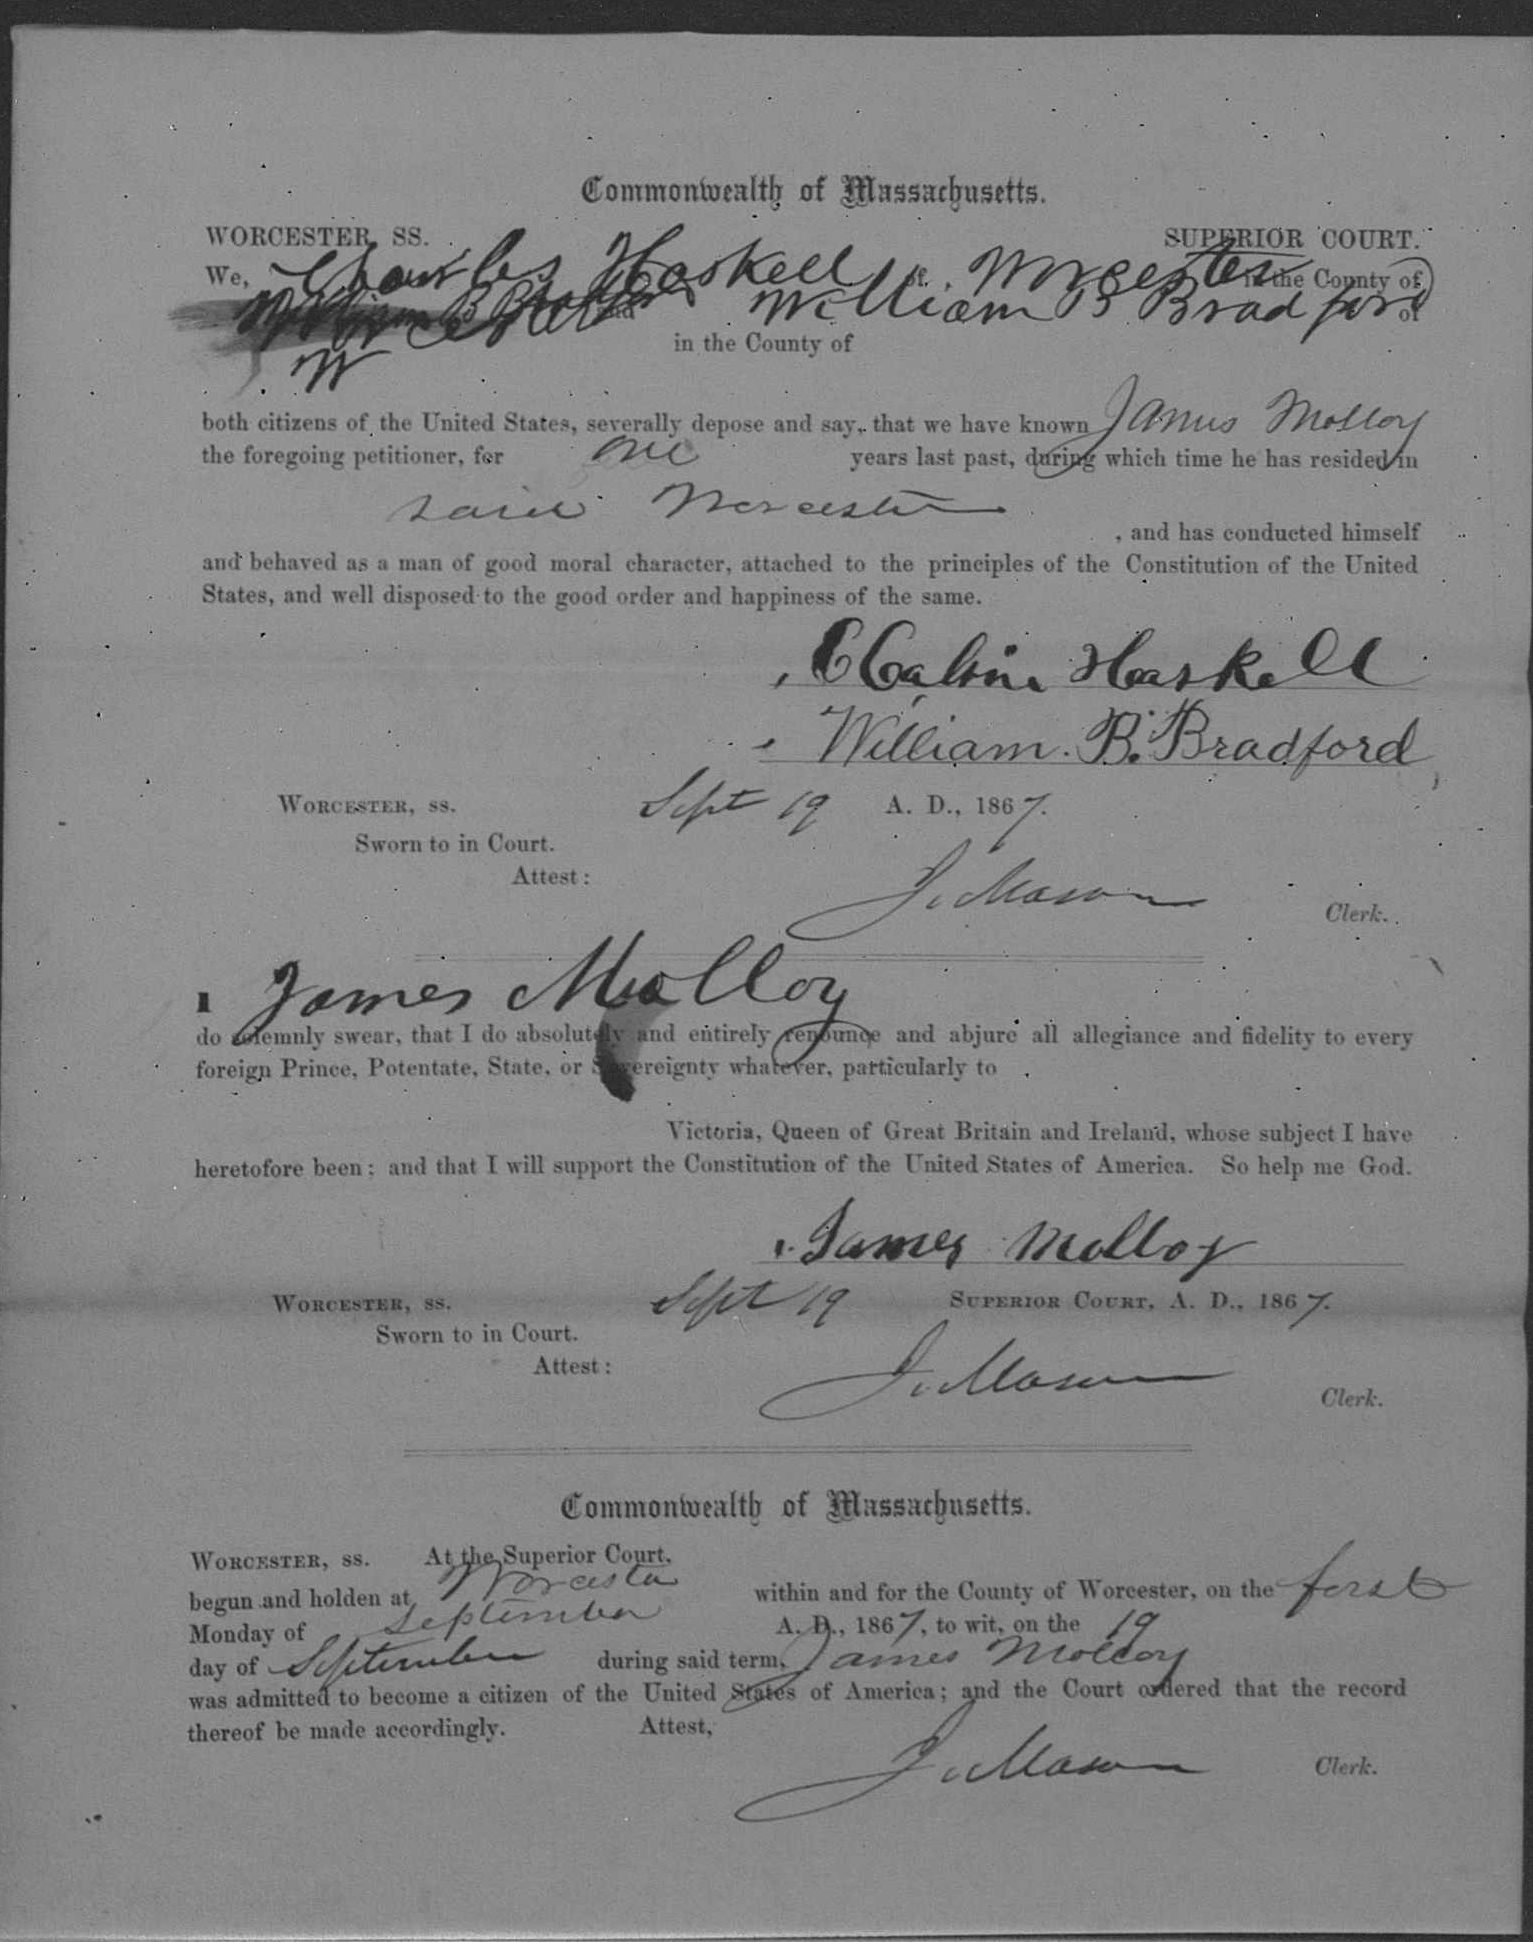 Commonwealth of Massachusetts.
WORCESTER, SS. SUPERIOR COURT.
We, Charles Haskell of Worcester in the County of
and William B Bradford of
W in the County of
both citizens of the United States, severally depose and say, that we have known James Molloy
the foregoing petitioner, for one years last past, during which time he has resided in
said Worcester
, and has conducted himself
and behaved as a man of good moral character, attached to the principles of the Constitution of the United
States, and well disposed to the good order and happiness of the same.
C Calvin Haskell
William. B. Bradford
WORCESTER, SS. Sept 19 A. D., 1867.
Sworn to in Court.
Attest:
J. Mason Clerk.
I James Molloy
do solemnly swear, that I do absolutely and entirely renounce and abjure all allegiance and fidelity to every
foreign Prince, Potentate, State, or Sovereignty whatever, particularly to
Victoria, Queen of Great Britain and Ireland, whose subject I have
heretofore been; and that I will support the Constitution of the United States of America. So help me God.
James Molloy
WORCESTER, SS. Sept 19 SUPERIOR COURT, A. D., 1867.
Sworn to in Court.
Attest:
J. Mason
Clerk.
Commonwealth of Massachusetts.
WORCESTER, SS. At the Superior Court,
begun and holden at Worcester within and for the County of Worcester, on the first
Monday of September A. D., 1867, to wit, on the 19
day of September during said term, James Molloy
was admitted to become a citizen of the United States of America; and the Court ordered that the record
thereof be made accordingly. Attest,
J. Mason Clerk.